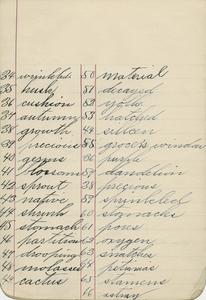 34 wrinkled
35 husk
36 cushion
37 autumn
38 growth
39 precious
40 germs
41 blossoms
42 sprout
43 native
44 shrub
45 stomach
46 partition
47 drooping
48 molasses
49 cactus
50 material
51 decayed
52 yolk
53 hatched
54 silken
55 grocer's window
56 purple
57 dandelion
58 precious
59 sprinkled
60 stomachs
61 pores
62 oxygen
63 snatches
64 petunias
65 stamens